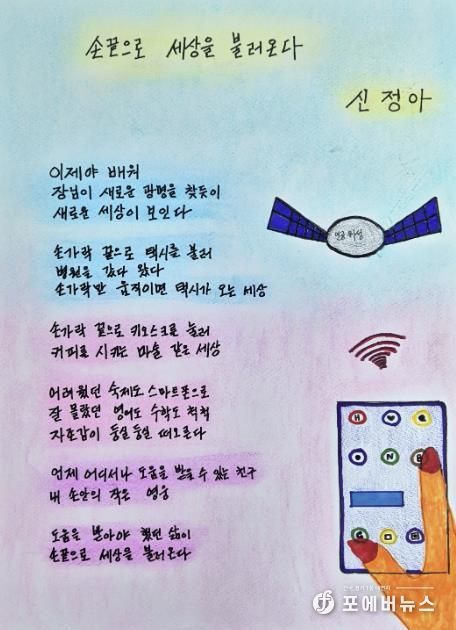 손끝으로 세상을 불러온다
신정아
이제야 배워
장님이 새로운 광명을 찾듯이
새로운 세상이 보인다
손가락 끝으로 택시를 불러
병원을 갔다 왔다
손가락만 움직이면 택시가 오는 세상
손가락 끝으로 키오스크를 눌러
커피를 시키는 마술 같은 세상
어려웠던 숙제도 스마트폰으로
잘 몰랐던 영어도 수학도 척척
자존감이 둥실둥실 떠오른다
언제 어디서나 도움을 받을 수 있는 친구
내 손안의 작은 영웅
도움을 받아야 했던 삶이
손끝으로 세상을 불러온다
인공위성
H
N
포에버뉴스